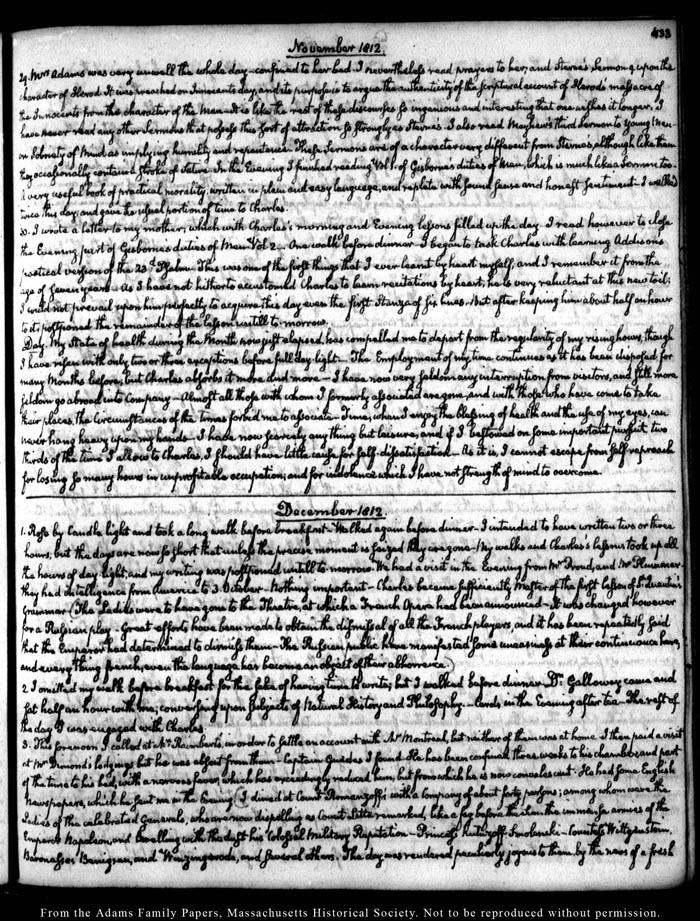 433
November 1812.
29. Mrs Adams was very unwell the whole day—confined to her bed. I nevertheless read prayers to her, and Sterne's Sermon 9 upon the
character of Herod. It was preached on Innocents day, and its purpose is to argue the authenticity of the scriptural account of Herod's massacre of
the Innocents from the character of the Man—It is like the rest of these discourses so ingenious and interesting that one wishes it longer. I
have never read any other Sermons that possess this sort of attraction so strongly as Sterne's. I also read Mayhew's third Sermon to Young Men
on Sobriety of Mind as implying humility and repentance. These Sermons are of a character very different from Sterne's, although like them
they occasionally contain a stroke of Satire. In the Evening I finished reading Vol. 1. of Gisborne's duties of Man, which is much like a Sermon too.
A very useful book of practical morality, written in plain and easy language, and replete with sound sense and honest sentiment—I walked
twice this day, and gave the usual portion of time to Charles.
30. I wrote a letter to my mother, which with Charles's morning and Evening lessons filled up the day. I read however to close
the Evening part of Gisborne's duties of Man Vol. 2. One walk before dinner—I began to task Charles with learning Addison's
poetical version of the 23d. Psalm. This was one of the first things that I ever learnt by heart myself, and I remember it from the
age of seven years. As I have not hitherto accustomed Charles to learn recitations by heart, he is very reluctant at this new toil.
I could not prevail upon him perfectly to acquire this day even the first Stanza of six lines. But after keeping him about half an hour
to it postponed the remainder of the lesson untill to-morrow.
Day. My State of health during the Month now just elapsed, has compelled me to depart from the regularity of my rising hours, though
I have risen with only two or three exceptions before full day-light—The Employment of my time continues as it has been disposed for
many Months before; but Charles absorbs it more and more—I have now very seldom any interruption from visitors, and still more
seldom go abroad into Company—Almost all those with whom I formerly associated are gone, and with those who have come to take
their places, the circumstances of the times forbid me to associate. Time, when I enjoy the blessing of health and the use of my eyes, can
never hang heavy upon my hands—I have now scarcely any thing but leisure, and if I bestowed on some important pursuit two
thirds of the time I allow to Charles, I should have little cause for self-dissatisfaction—As it is, I cannot escape from self-reproach
for losing so many hours in unprofitable occupation; and for indolence which I have not strength of mind to overcome.
December 1812.
1. Rose by Candle light and took a long walk before breakfast—Walked again before dinner—I intended to have written two or three
hours, but the days are now so short that unless the precise moment is seized they are gone—My walks and Charles's lessons took up all
the hours of day light, and my writing was postponed untill to morrow. We had a visit in the Evening from Mr Proud, and Mr Plummer
they had intelligence from America to 3. October—Nothing important—Charles became sufficiently Master of the first lesson of St. Quentin's
Grammar. (The Ladies were to have gone to the Theatre, at which a French Opera had been announced—It was changed however
for a Russian play—Great efforts have been made to obtain the dismissal of all the French players, and it has been repeatedly said
that the Emperor had determined to dismiss them—The Russian public have manifested some uneasiness at their continuance here,
and every thing french, even the language has become an object of their abhorrence.)
2 I omitted my walk before breakfast for the sake of having time to write; but I walked before dinner. Dr. Galloway came and
sat half an hour with me; conversing upon subjects of Natural History and Philosophy.—Cards, in the Evening after tea—The rest of
the day I was engaged with Charles.
3. This forenoon I called at Mr Raimbert's, in order to settle an account with Mr Montreal, but neither of them was at home. I then paid a visit
at Mr Dimond's lodgings but he was absent from them—Captain Guedes I found. He has been confined three weeks to his chamber, and part
of the time to his bed, with a nervous fever, which has exceedingly reduced him, but from which he is now convalescent—He had some English
Newspapers, which he sent me in the Evening. I dined at Count Romanzoff's; with a company of about forty persons; among whom were the
Ladies of the celebrated Generals, who are now dispelling as Count Litta remarked, like a fog before the sun the immense armies of the
Emperor Napoleon, and levelling with the dust his Colossal Military Reputation—Princess Kutuzoff Smolenski—Countess Wittgenstein,
Baronesses Benigsen, and Winzingerode, and several others. The day was rendered peculiarly joyous to them by the news of a fresh
From the Adams Family Papers, Massachusetts Historical Society. Not to be reproduced without permission.